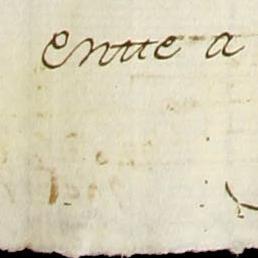 Entte a